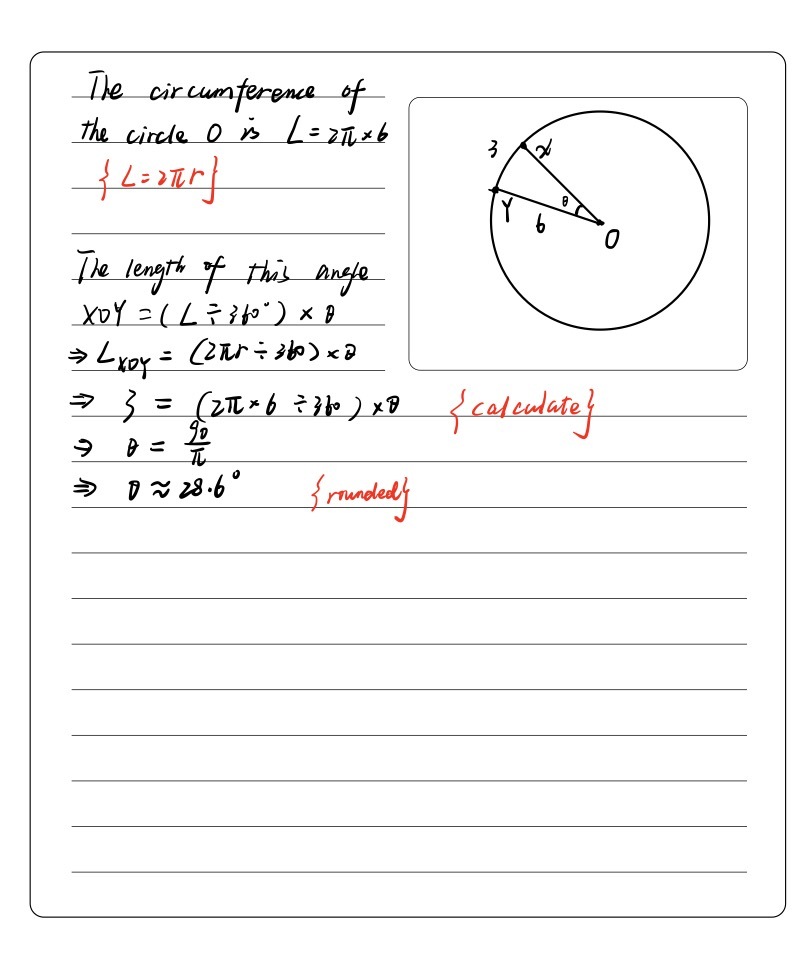 The circumference of
the circle O is L=2π×6
{L=2πr}
The length of this angle
XOY =(L÷360°) × θ
⇒ L_XOY = (2πr÷360)×θ
⇒ 3 = (2π×6 ÷360) ×θ {calculate}
⇒ θ = 90/π
⇒ θ ≈ 28.6° {rounded}
3 x
θ
Y
6
O